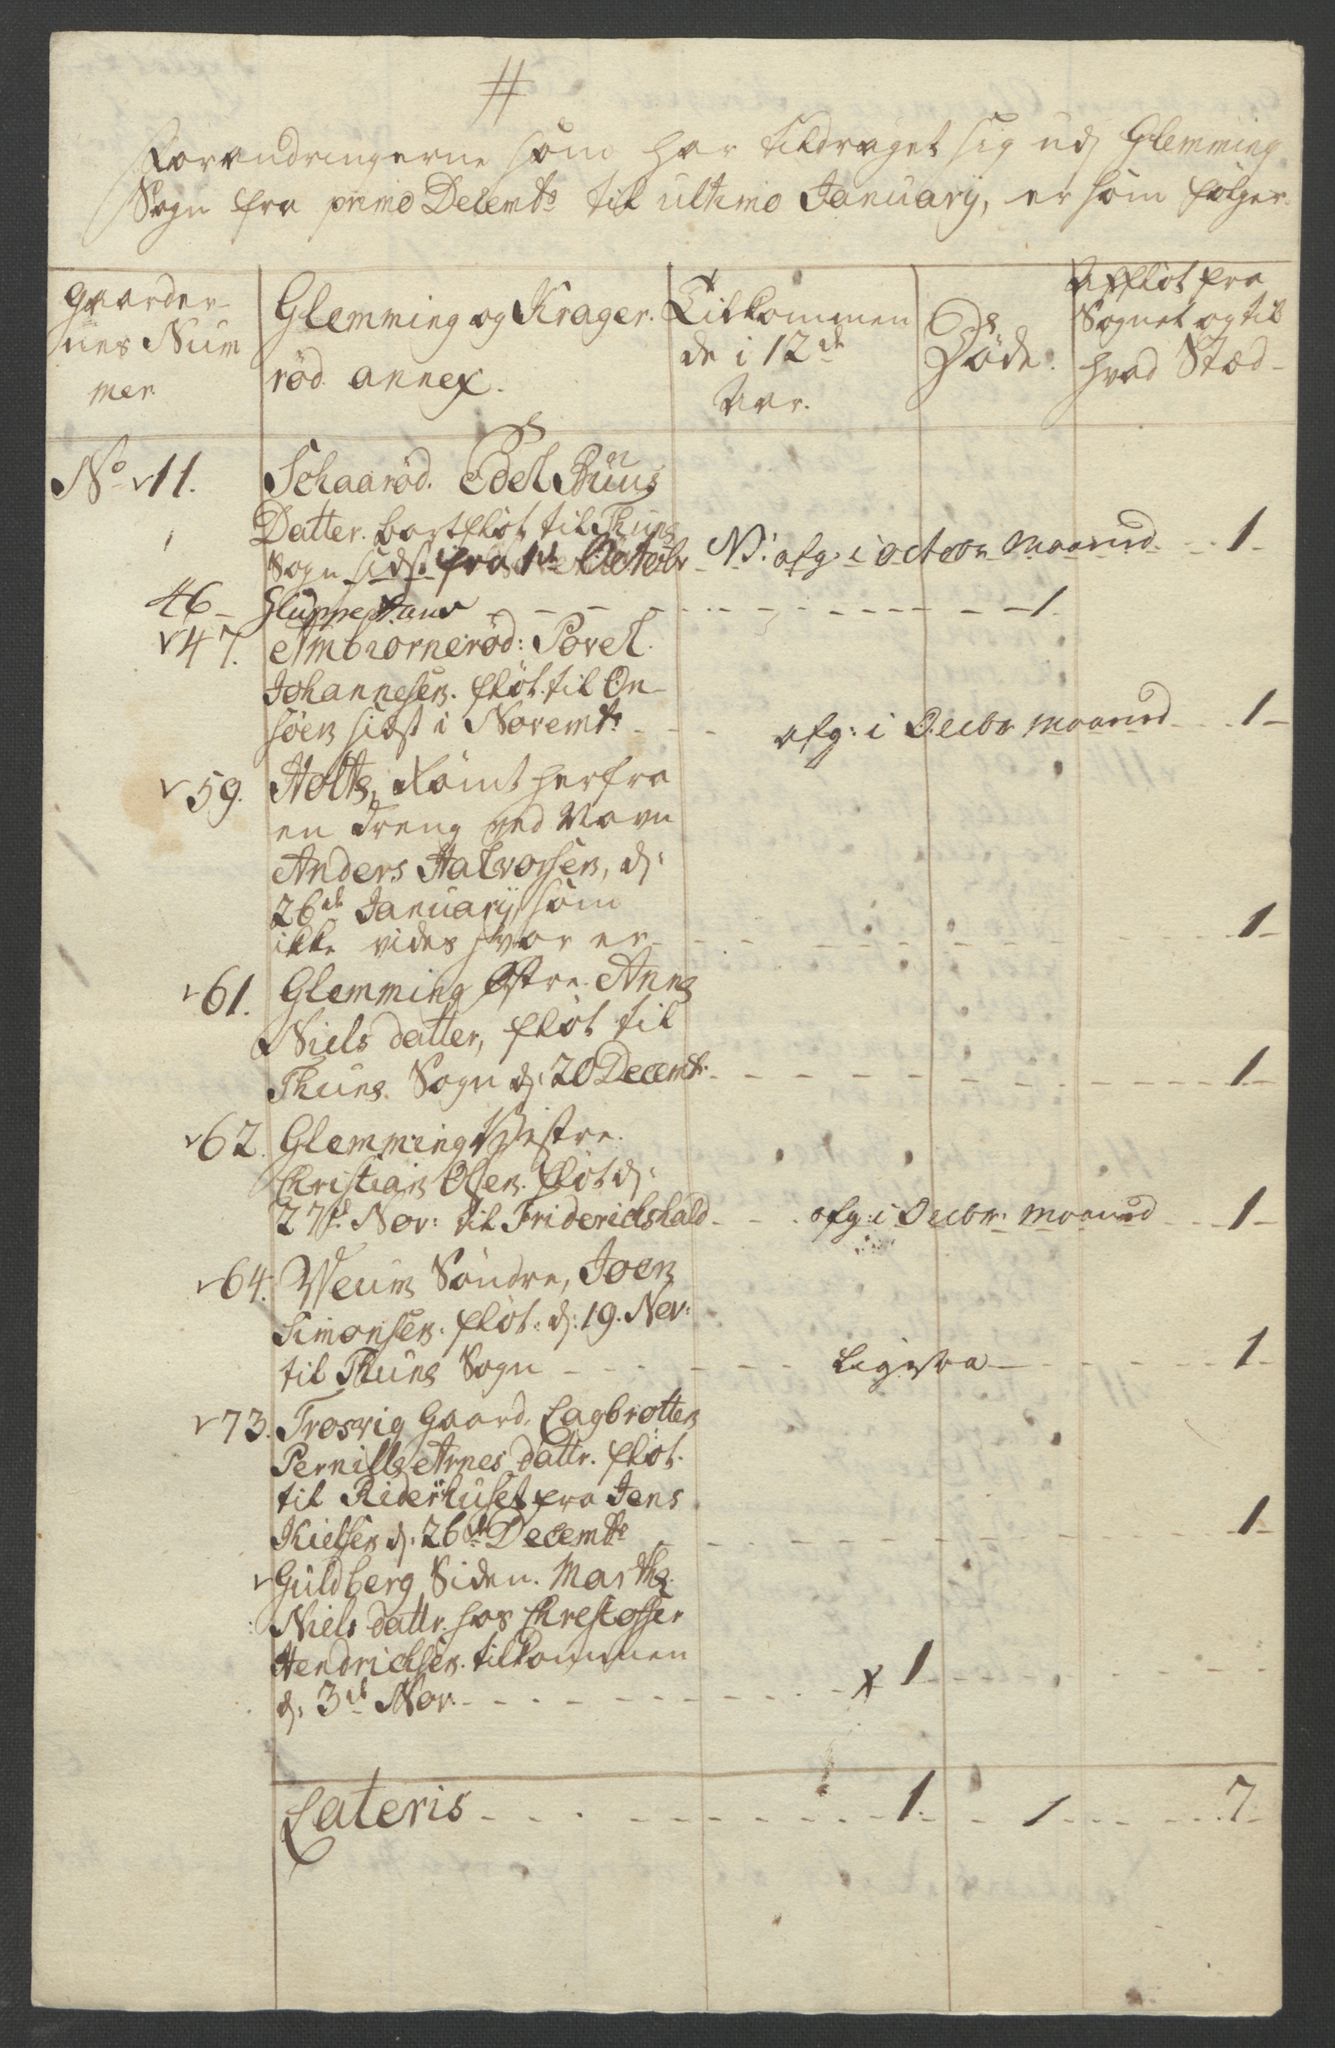 #
Forandringerne som har tildraget sig udj Glemming
Sogn fra primo Decembr til ultimo Januarij, er som følger.
Gaarder-
nes Num
mer.
Glemming og Krager.
rød annex.
Tilkommen
de i 12de
Aar.
Døde.
Afflöt fra
Sognet og til
hvad Stæd
No 11. Schaarød. Edel Buus
Datter. bortflöt til Thuns
Sogn sidst fra 1te Octobr NB: afg: i October Maaned 1
46 Gluppestuen 1
47. Ambiornerød: Povel
Johannesen. flöt til On-
søen sidst i Novembr. afg: i Decbr Maaned 1
59. Holte, Römt herfra
en Dreng ved Navn
Anders Halvorsen, d:
26de Januarij, som
ikke vides hvor er 1
61. Glemming Østre. Anne
Niels datter, flöt til
Thuns Sogn d: 20 Decembr. 1
62. Glemming Vestre.
Christian Olsen. flöt d:
27de Nov: til Friderichshald afg: i Decbr: Maaned 1
64. Weum Söndre, Joen
Simonsen: flöt: d: 19. Nov:
til Thuns Sogn Ligesaa 1
73. Trosvig Gaard. Lagbrotten
Pernille Arnes dattr. flöt.
til Riderhuset fra Jens
Kielsen d: 26de Decembr 1
Guldberg Siden. Marthe
Niels dattr. hos Christoffer
Hendrichsen. tilkommen
d: 3de Nov. x 1
Lateris 1. 1 7